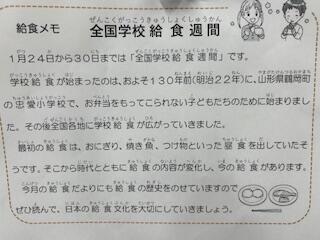 給食メモ 全国学校給食週間
1月24日から30日までは「全国学校給食週間」です。
学校給食が始まったのは、およそ130年前(明治22年)に、山形県鶴岡町
の忠愛小学校で、お弁当をもってこられない子どもたちのために始まりまし
た。その後全国各地に学校給食が広がっていきました。
最初の給食は、おにぎり、焼き魚、つけ物といった昼食を出していたそ
うです。そこから時代とともに給食の内容が変化し、今の給食があります。
今月の給食だよりにも給食の歴史をのせていますので
ぜひ読んで、日本の給食文化を大切にしていきましょう。